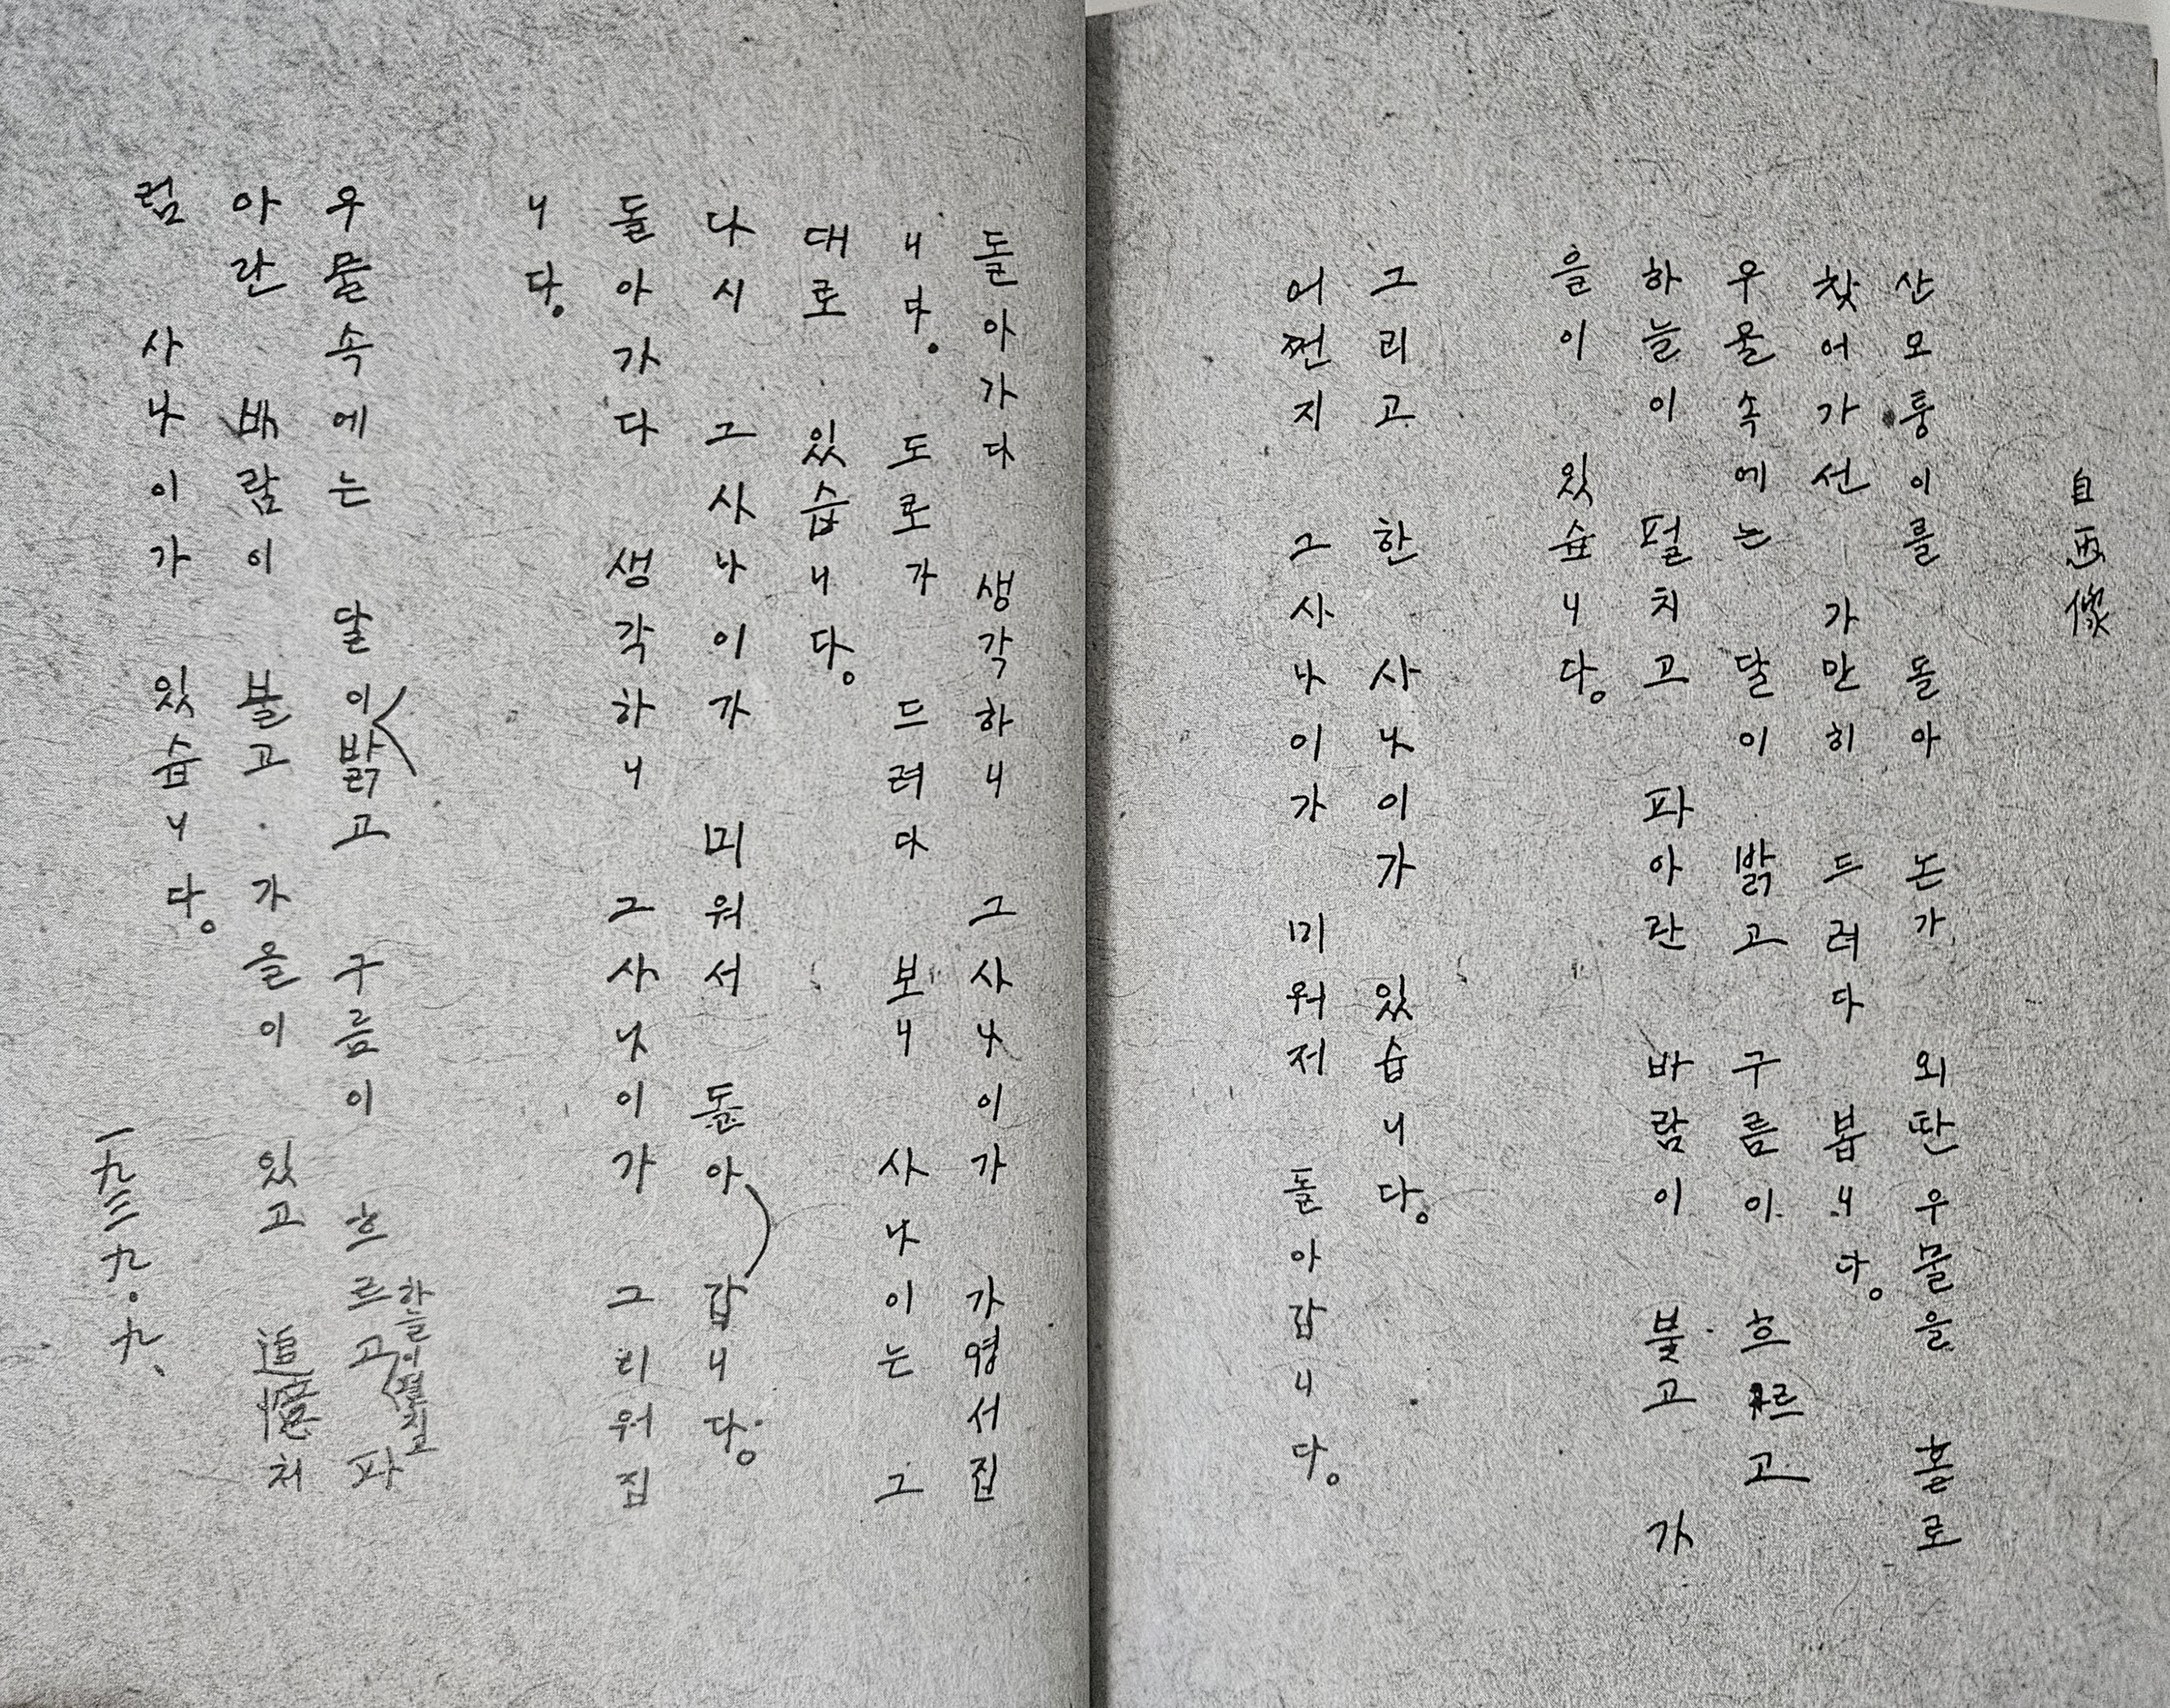 自画像
산모퉁이를 돌아 논가 외딴우물을 홀로
찾어가선 가만히 드려다 봅니다。
우물속에는 달이 밝고 구름이 흐르고
하늘이 펄치고 파아란 바람이 불고 가
을이 있습니다。
그리고 한 사나이가 있습니다。
어쩐지 그사나이가 미워저 돌아갑니다。
돌아가다 생각하니 그사나이가 가엽서집
니다。 도로가 드려다 보니 사나이는 그
대로 있습니다。
다시 그사나이가 미워서 돌아 갑니다。
돌아가다 생각하니 그사나이가 그리워집
니다。
우물속에는 달이밝고 구름이 흐르고 하늘이펄치고 파
아란 바람이 불고 가을이 있고 追憶처
럼 사나이가 있습니다。
一九三九.九、